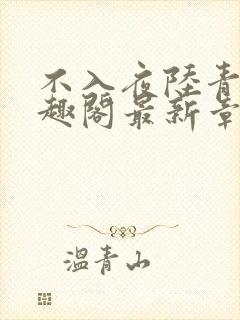 不入夜陸青
趣閣最新章
溫青山